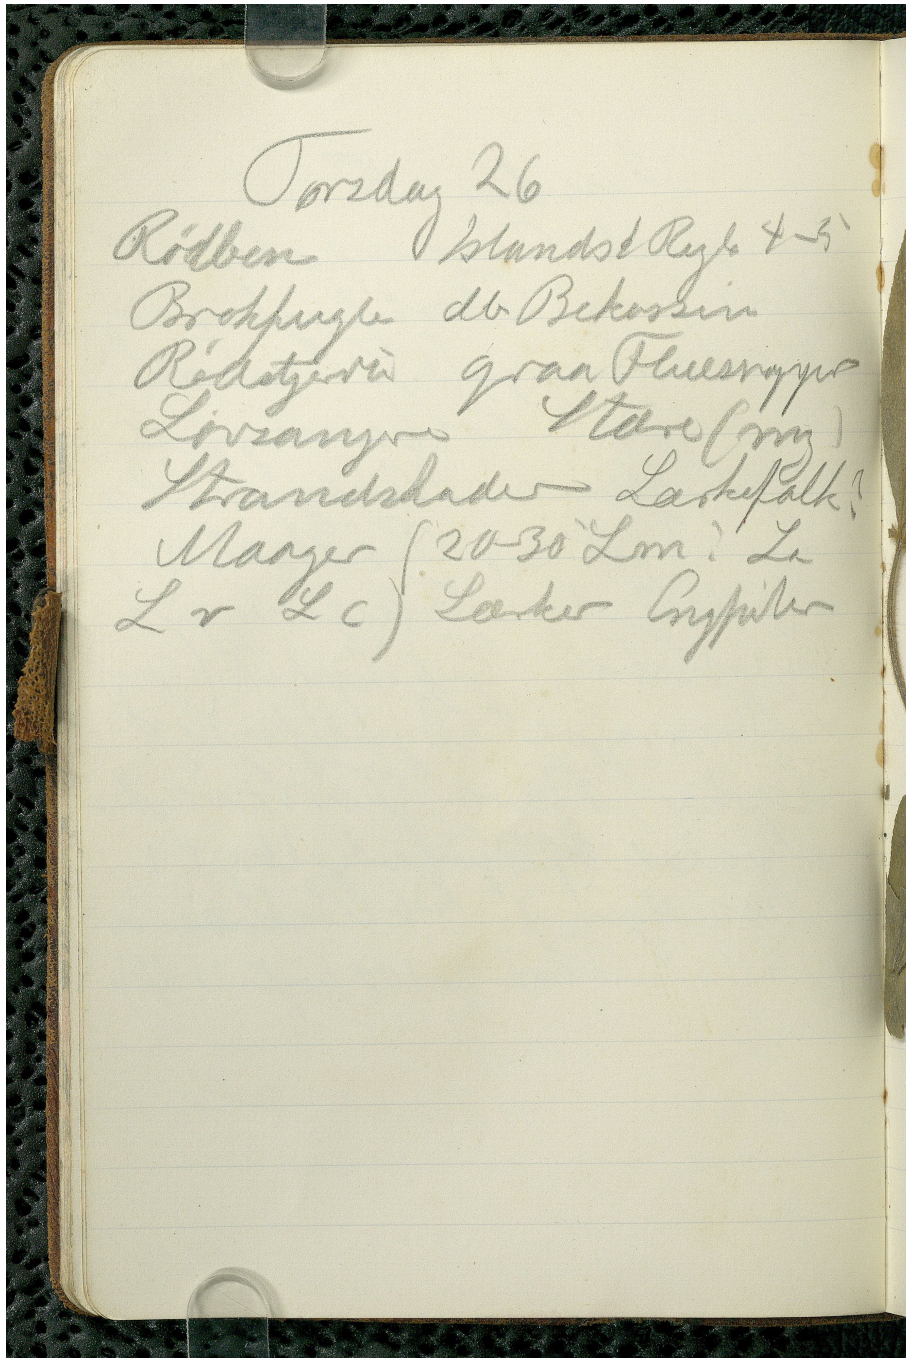 Torsdag 26
Rødben Islandsk Ryle 4-5
Brokfugle db Bekassin
Rødstjerte graa Fluesnapper
Løvsangere Stære (mg)
Strandskader Lærkefalk?
Maager (20-30 Lm? La
L r L c) Lærker Engpiber